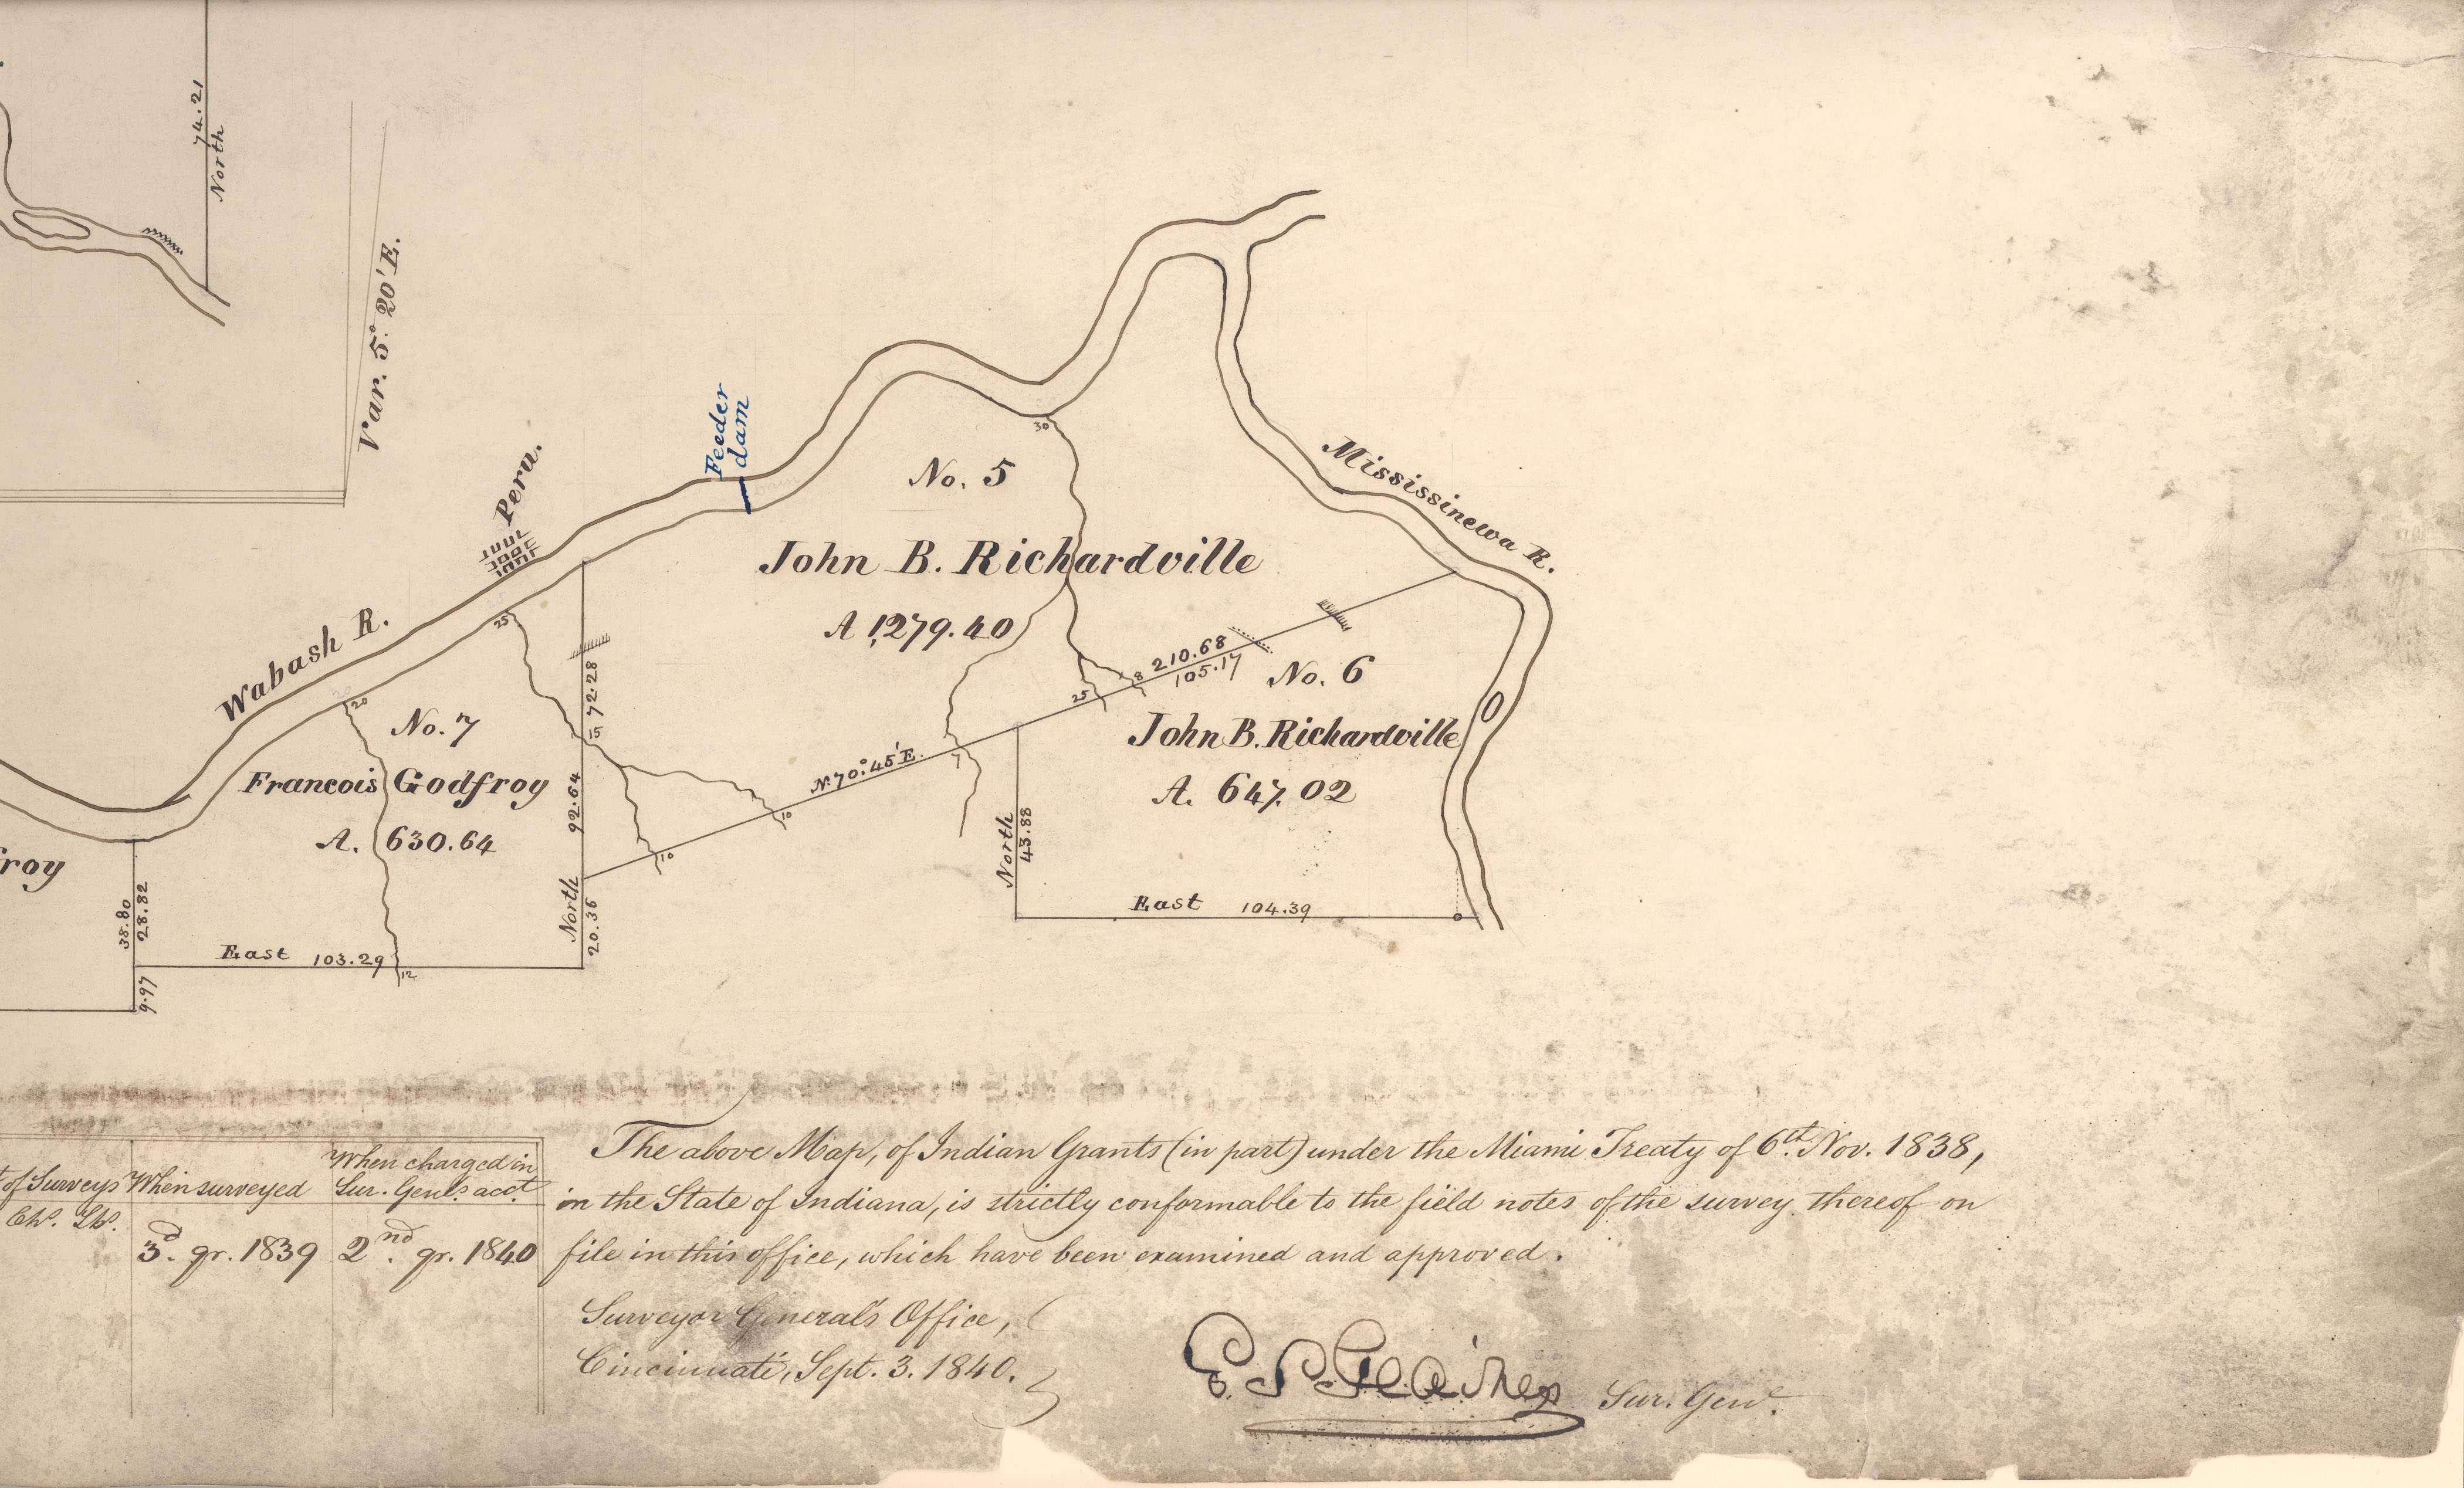 74.21
North
Var. 5° 20' E.
Peru.
Feeder
dam
Wabash R.
Mississinewa R.
30
No. 5
John B. Richardville
A 1,279.40
25
72.28
15
92.64
North
20.36
N. 70° 45' E.
10
10
7
25
8
210.68
105.17
No. 6
John B. Richardville
A. 647.02
North
43.88
East 104.39
20
No. 7
Francois Godfroy
A. 630.64
froy
38.80
28.82
9.97
East 103.29
12
of Surveys
Chs. Lks.
When surveyed
3d. qr. 1839
When charged in
Sur. Genl's acct.
2nd. qr. 1840
The above Map, of Indian Grants (in part) under the Miami Treaty of 6th. Nov. 1838,
in the State of Indiana, is strictly conformable to the field notes of the survey thereof on
file in this office, which have been examined and approved.
Surveyor General's Office,
Cincinnati, Sept. 3. 1840.
Sur. Genl.